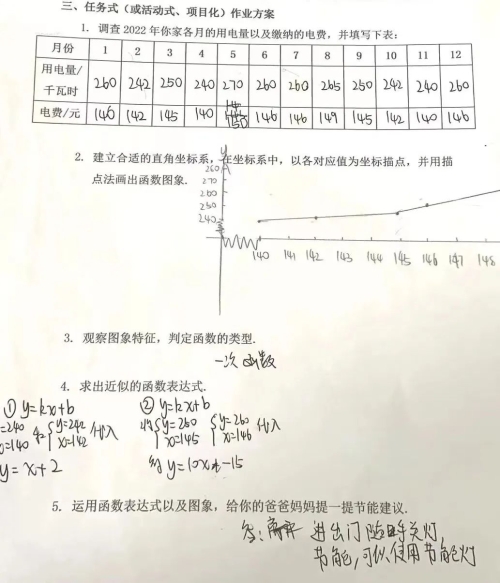 三、任务式（或活动式、项目化）作业方案
1. 调查 2022 年你家各月的用电量以及缴纳的电费，并填写下表：
月份 1 2 3 4 5 6 7 8 9 10 11 12
用电量/千瓦时 260 242 250 240 270 260 260 265 250 242 240 260
电费/元 146 142 145 140 150 146 146 149 145 142 140 146
2. 建立合适的直角坐标系，在坐标系中，以各对应值为坐标描点，并用描
点法画出函数图象.
y
260
270
260
250
240
140 141 142 143 144 145 146 147 148
3. 观察图象特征，判定函数的类型.
一次函数
4. 求出近似的函数表达式.
① y=kx+b ② y=kx+b
=240 y=242 y=260 y=260
=140 x=142 代入 x=145 x=146 代入
y=x+2 y=10x -15
5. 运用函数表达式以及图象，给你的爸爸妈妈提一提节能建议.
答: 进出门随时关灯,
节能,可以使用节能灯